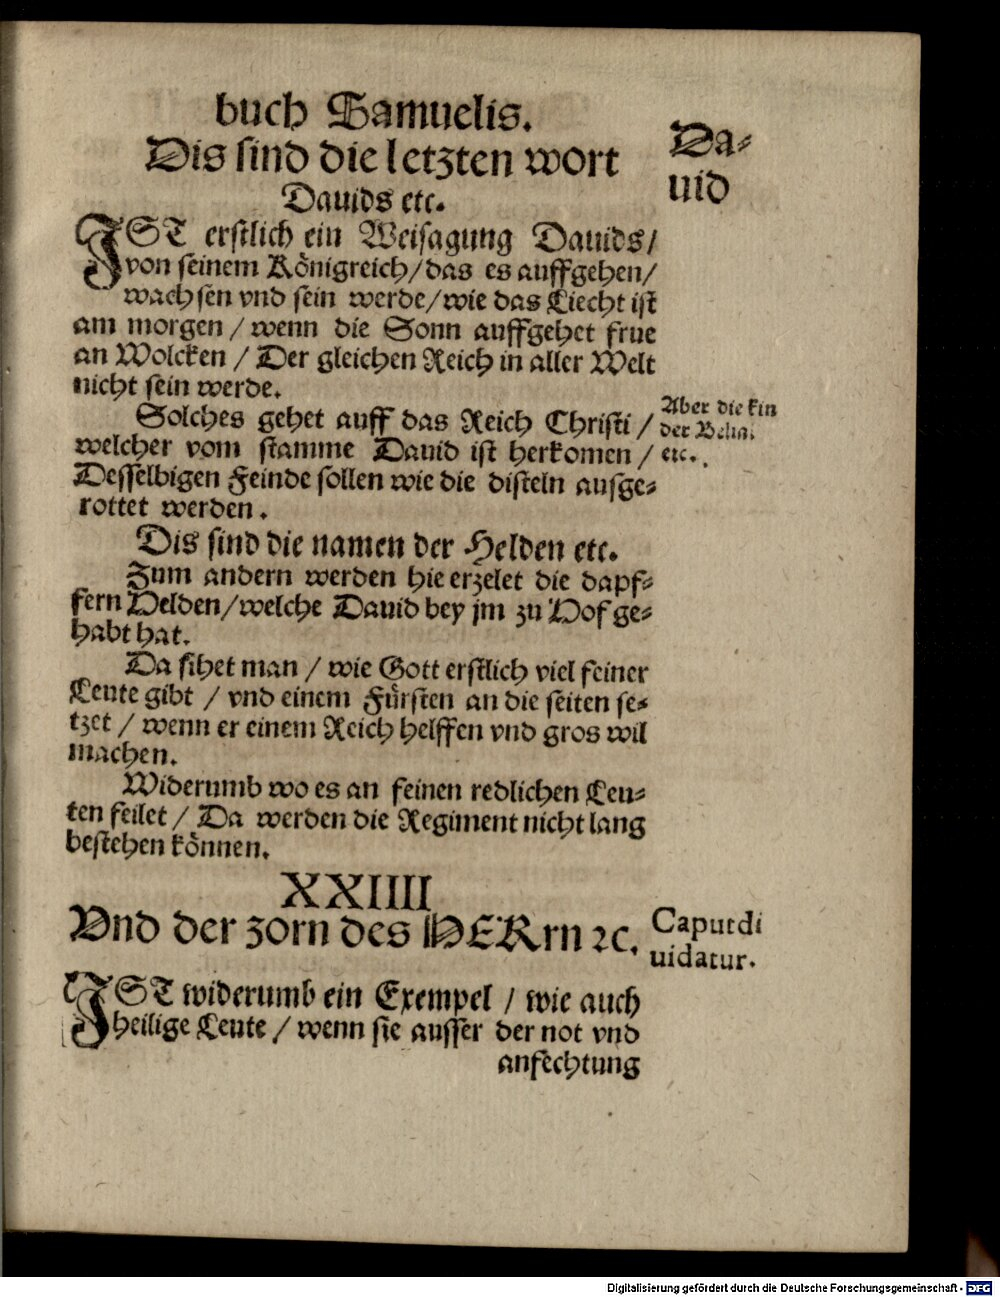 buch Samuelis.
Dis sind die letzten wort
Dauids etc.
Da-
uid
IST erstlich ein Weisagung Dauids/
von seinem Königreich/das es auffgehen/
wachsen vnd sein werde/wie das Liecht ist
am morgen / wenn die Sonn auffgehet frue
an Wolcken / Der gleichen Reich in aller Welt
nicht sein werde.
Solches gehet auff das Reich Christi /
welcher vom stamme Dauid ist herkomen /
Desselbigen Feinde sollen wie die disteln ausge-
rottet werden.
Aber die kin
der Belia.
etc.
Dis sind die namen der Helden etc.
Zum andern werden hie erzelet die dapf-
fern Helden/welche Dauid bey jm zu Hof ge-
habt hat.
Da sihet man / wie Gott erstlich viel feiner
Leute gibt / vnd einem Fürsten an die seiten se-
tzet / wenn er einem Reich helffen vnd gros wil
machen.
Widerumb wo es an feinen redlichen Leu-
ten feilet / Da werden die Regiment nicht lang
bestehen können.
XXIIII
Vnd der zorn des HERrn ꝛc.
Caput di
uidatur.
IST widerumb ein Exempel / wie auch
heilige Leute / wenn sie ausser der not vnd
anfechtung
Digitalisierung gefördert durch die Deutsche Forschungsgemeinschaft - DFG